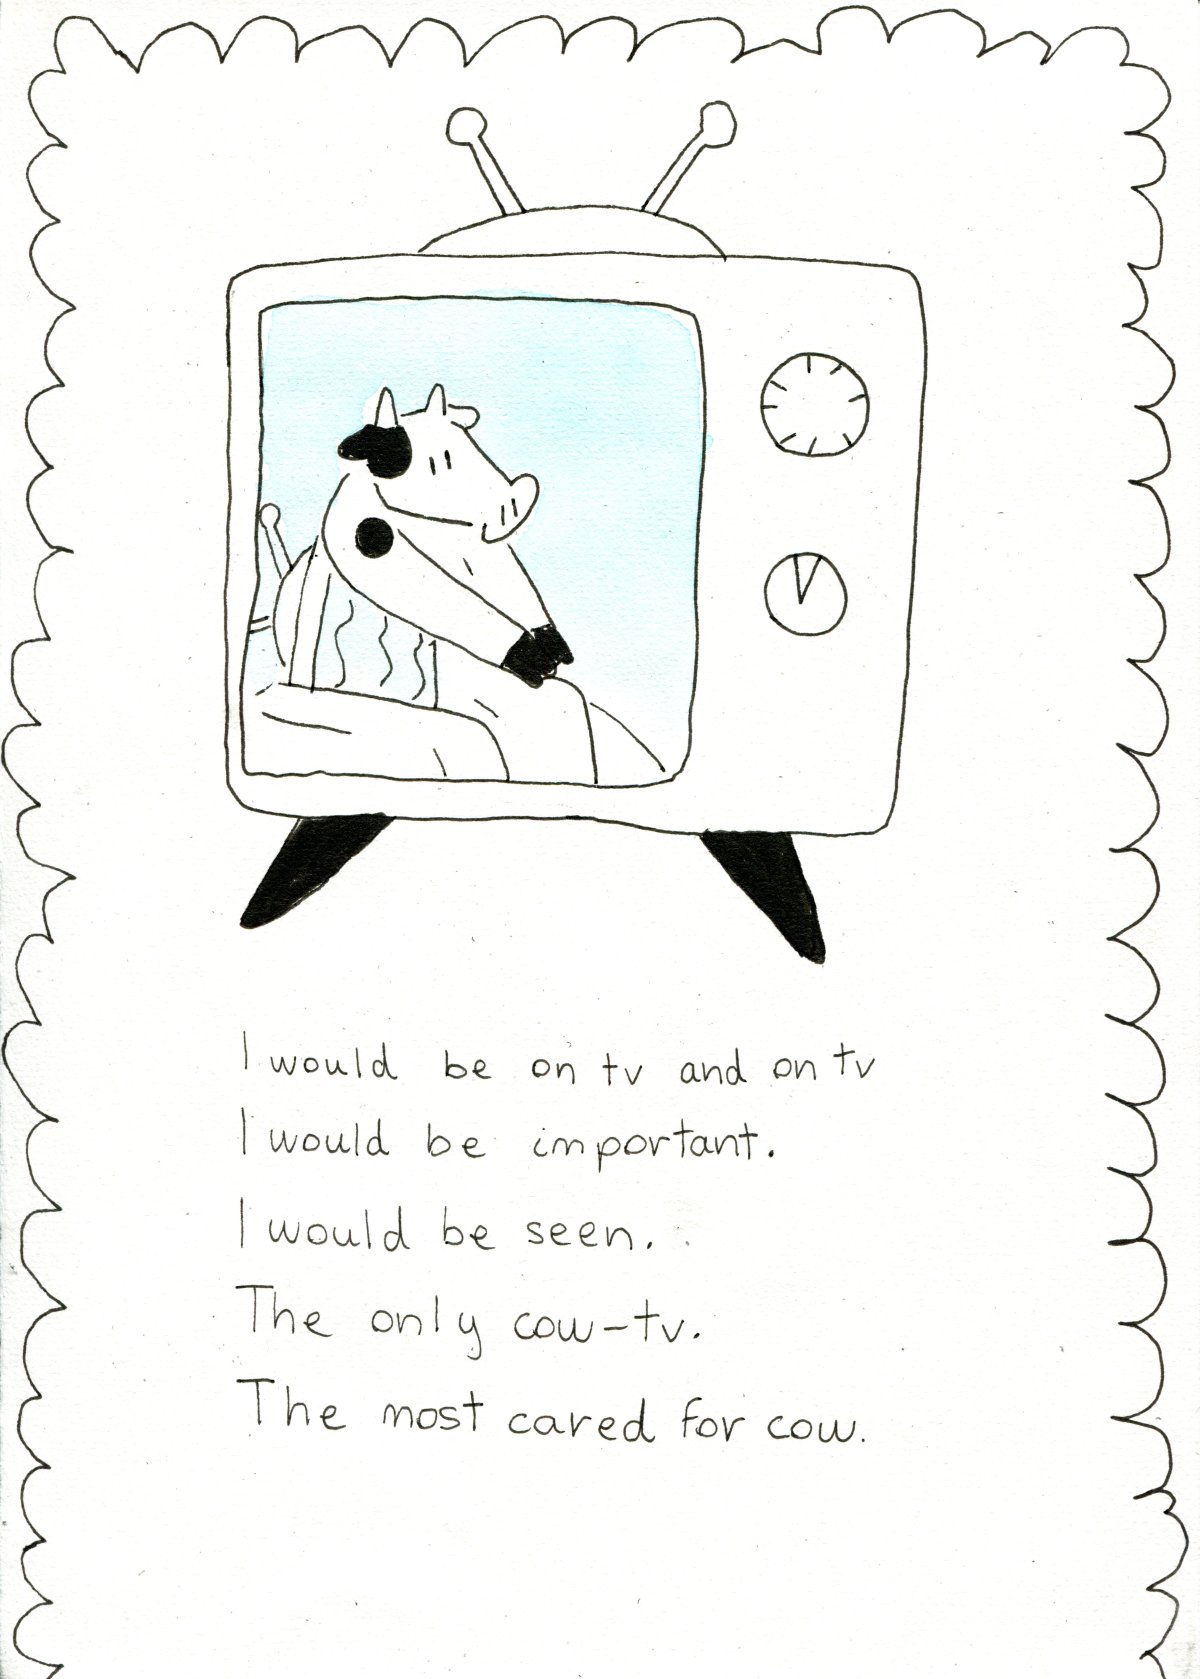 I would be on tv and on tv
I would be important.
I would be seen.
The only cow-tv.
The most cared for cow.